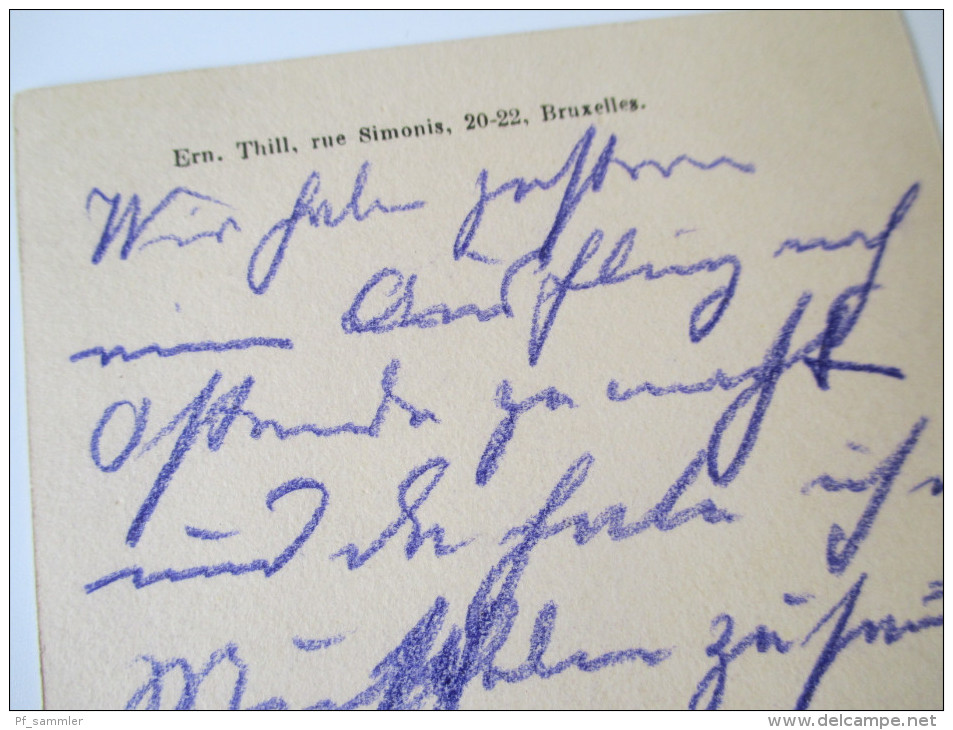 Ern. Thill, rue Simonis, 20-22, Bruxelles.
Wir haben gestern
einen Ausflug nach
Ostende gemacht
und da habe ich
Muscheln
Pf_sammler
www.delcampe.net